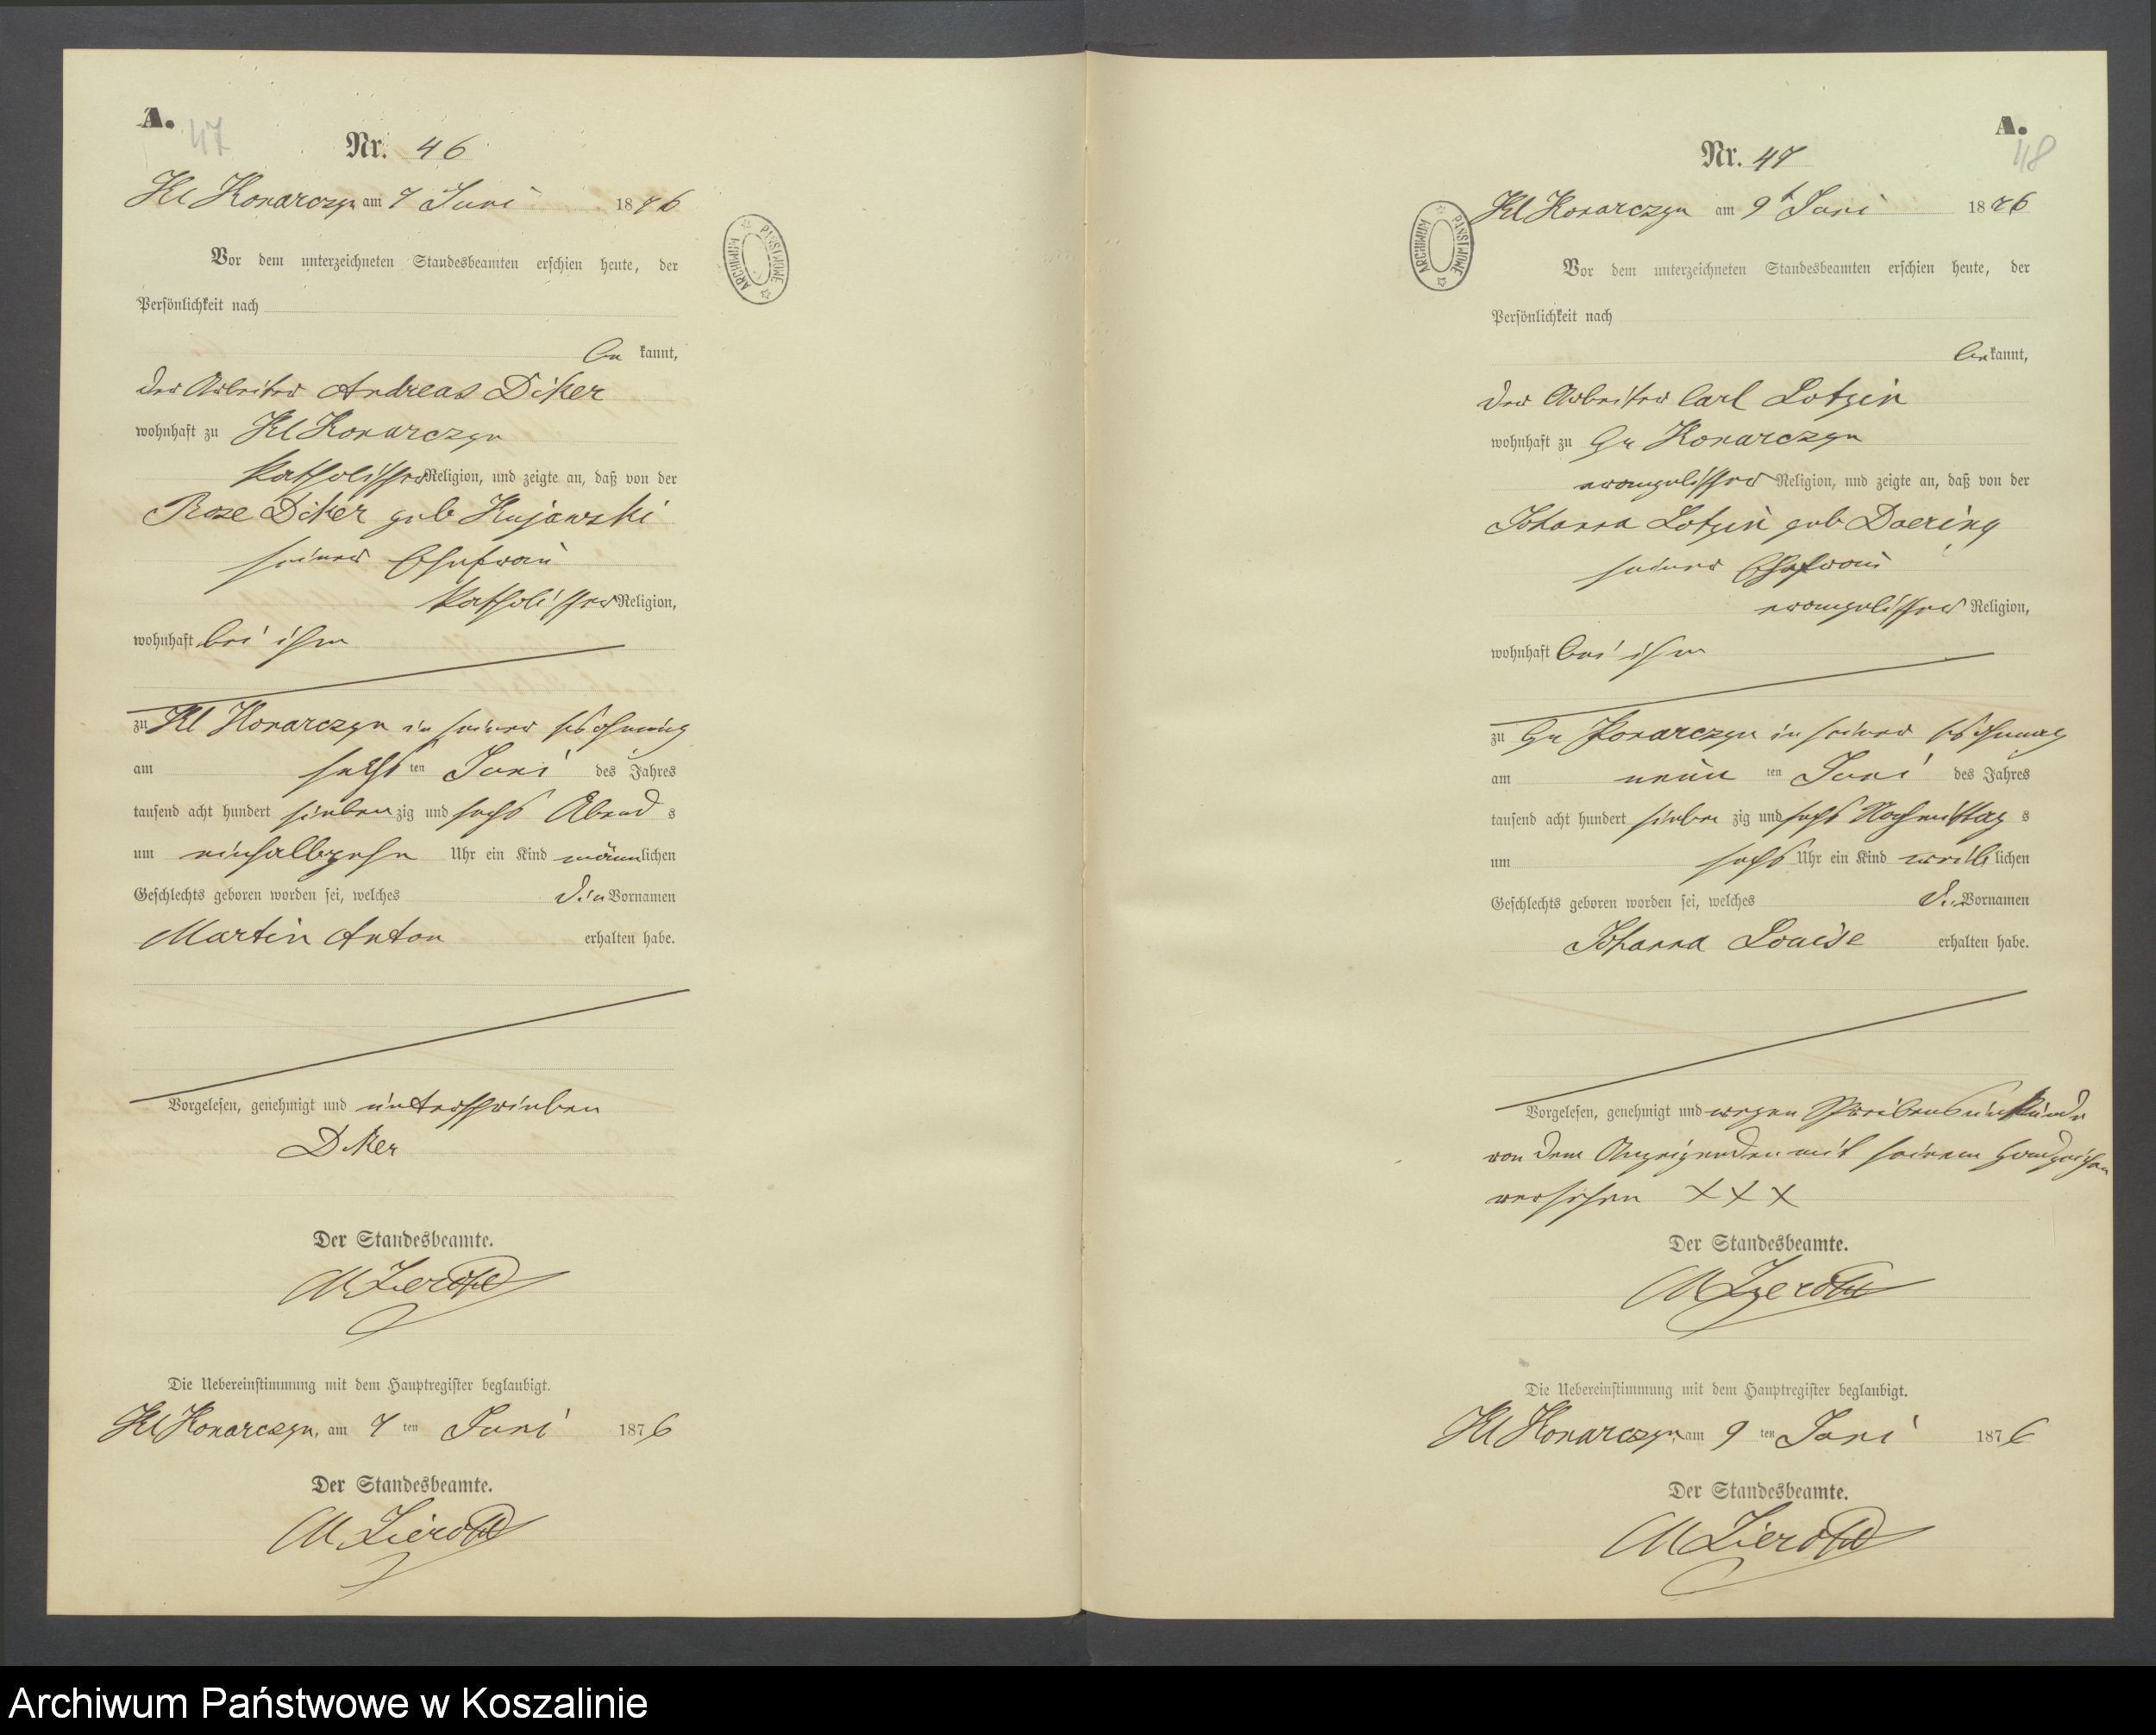 A.
47
Nr. 46
Kl Konarczyn am 7 Juni 1876
Vor dem unterzeichneten Standesbeamten erschien heute, der
Persönlichkeit nach
be kannt,
der Arbeiter Andreas Diker
wohnhaft zu Kl Konarczyn
katholischer Religion, und zeigte an, daß von der
Rose Diker geb Kujawski
seiner Ehefrau
katholischer Religion,
wohnhaft bei ihm
zu Kl Konarczyn in seiner Wohnung
am sechs ten Juni des Jahres
tausend acht hundert sieben zig und sechs Abend s
um einhalbzehn Uhr ein Kind männlichen
Geschlechts geboren worden sei, welches die Vornamen
Martin Anton erhalten habe.
Vorgelesen, genehmigt und unterschrieben
Diker
Der Standesbeamte.
M
Die Uebereinstimmung mit dem Hauptregister beglaubigt.
Kl Konarczyn, am 7 ten Juni 1876
Der Standesbeamte.
M
ARCHIWUM PAŃSTWOWE
A.
48
Nr. 47
Kl Konarczyn am 9t Juni 1876
Vor dem unterzeichneten Standesbeamten erschien heute, der
Persönlichkeit nach
be kannt,
der Arbeiter Carl Lotzin
wohnhaft zu Gr Konarczyn
evangelischer Religion, und zeigte an, daß von der
Johanna Lotzin geb Doering
seiner Ehefrau
evangelischer Religion,
wohnhaft bei ihm
zu Gr Konarczyn in seiner Wohnung
am neun ten Juni des Jahres
tausend acht hundert sieben zig und sechs Nachmittag s
um sechs Uhr ein Kind weiblichen
Geschlechts geboren worden sei, welches die Vornamen
Johanna Louise erhalten habe.
Vorgelesen, genehmigt und wegen Schreibensunkunde
von dem Anzeigenden mit seinem Handzeichen
versehen X X X
Der Standesbeamte.
M
Die Uebereinstimmung mit dem Hauptregister beglaubigt.
Kl Konarczyn, am 9 ten Juni 1876
Der Standesbeamte.
M
ARCHIWUM PAŃSTWOWE
Archiwum Państwowe w Koszalinie